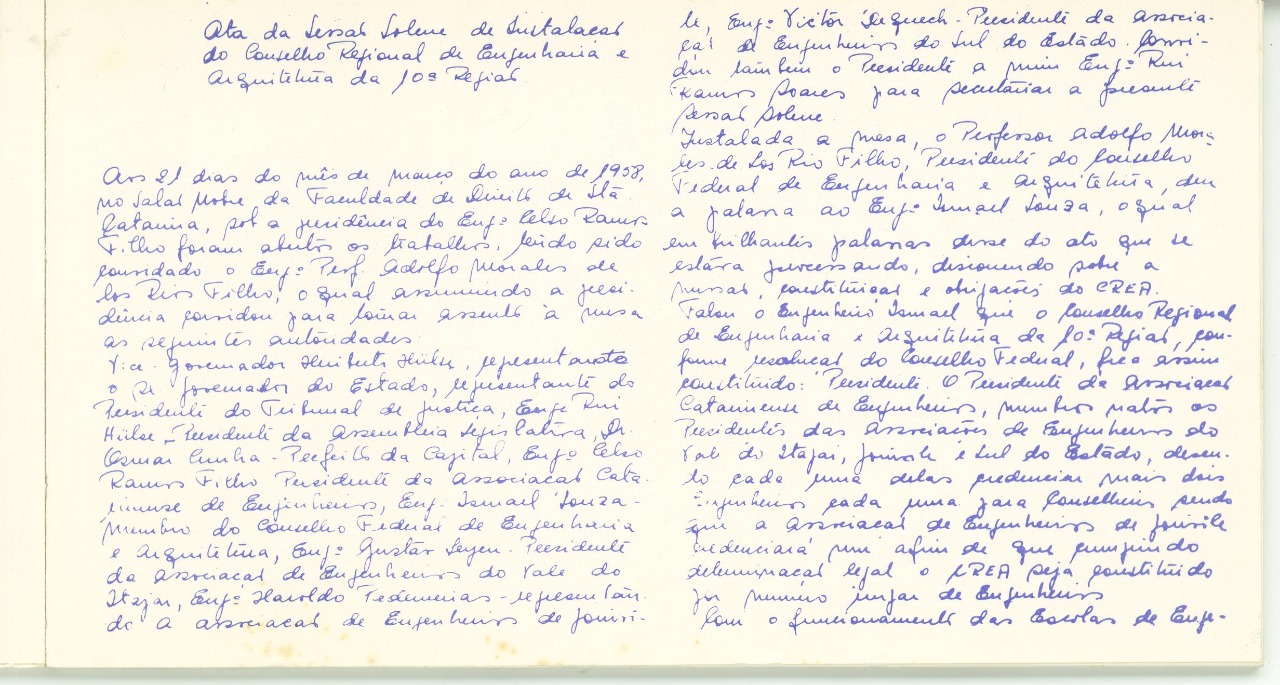 Ata da Sessão Solene de Instalação
do Conselho Regional de Engenharia e
Arquitetura da 10ª Região
Aos 21 dias do mês de março do ano de 1958,
no Salão Nobre da Faculdade de Direito de Stª
Catarina, sob a presidência do Engº Celso Ramos
Filho foram abertos os trabalhos, tendo sido
convidado o Engº Prof. Adolfo Morales de
los Rios Filho, o qual assumindo a presi-
dência convidou para tomar assento à mesa
as seguintes autoridades:
Vice-Governador Heriberto Hülse, representando
o Sr. Governador do Estado, representante do
Presidente do Tribunal de Justiça, Engº Rui
Hülse - Presidente da Assembleia Legislativa, Dr.
Osmar Cunha - Prefeito da Capital, Engº Celso
Ramos Filho Presidente da Associação Cata-
rinense de Engenheiros, Eng. Ismael Souza -
Membro do Conselho Federal de Engenharia
e Arquitetura, Engº Gustav - Presidente
da Associação de Engenheiros do Vale do
Itajai, Engº Haroldo - representan-
do a Associação de Engenheiros de Joinvi-
le, Engº Victor Dequech - Presidente da Associa-
ção de Engenheiros do Sul do Estado. Convi-
dou também o Presidente a mim Engº Rui
Ramos Soares para secretariar a presente
Sessão Solene.
Instalada a mesa, o Professor Adolfo Mora-
les de Los Rio Filho, Presidente do Conselho
Federal de Engenharia e Arquitetura, deu
a palavra ao Engº Ismael Souza, o qual
em brilhantes palavras disse do ato que se
estava processando, discorrendo sobre a
missão, constituição e obrigações do CREA.
Falou o Engenheiro Ismael que o Conselho Regional
de Engenharia e Arquitetura da 10ª Região, con-
forme resolução do Conselho Federal, fica assim
constituido: Presidente. O Presidente da Associação
Catarinense de Engenheiros, membros natos os
Presidentes das Associações de Engenheiros do
Vale do Itajai, Joinvile e Sul do Estado, deven-
do cada uma delas credenciar mais dois
Engenheiros cada uma para Conselheiros sendo
que a Associação de Engenheiros de Joinvile
credenciará um afim de que cumprindo
determinação legal o CREA seja constituido
por numero impar de Engenheiros
Com o funcionamento das Escolas de Enge-